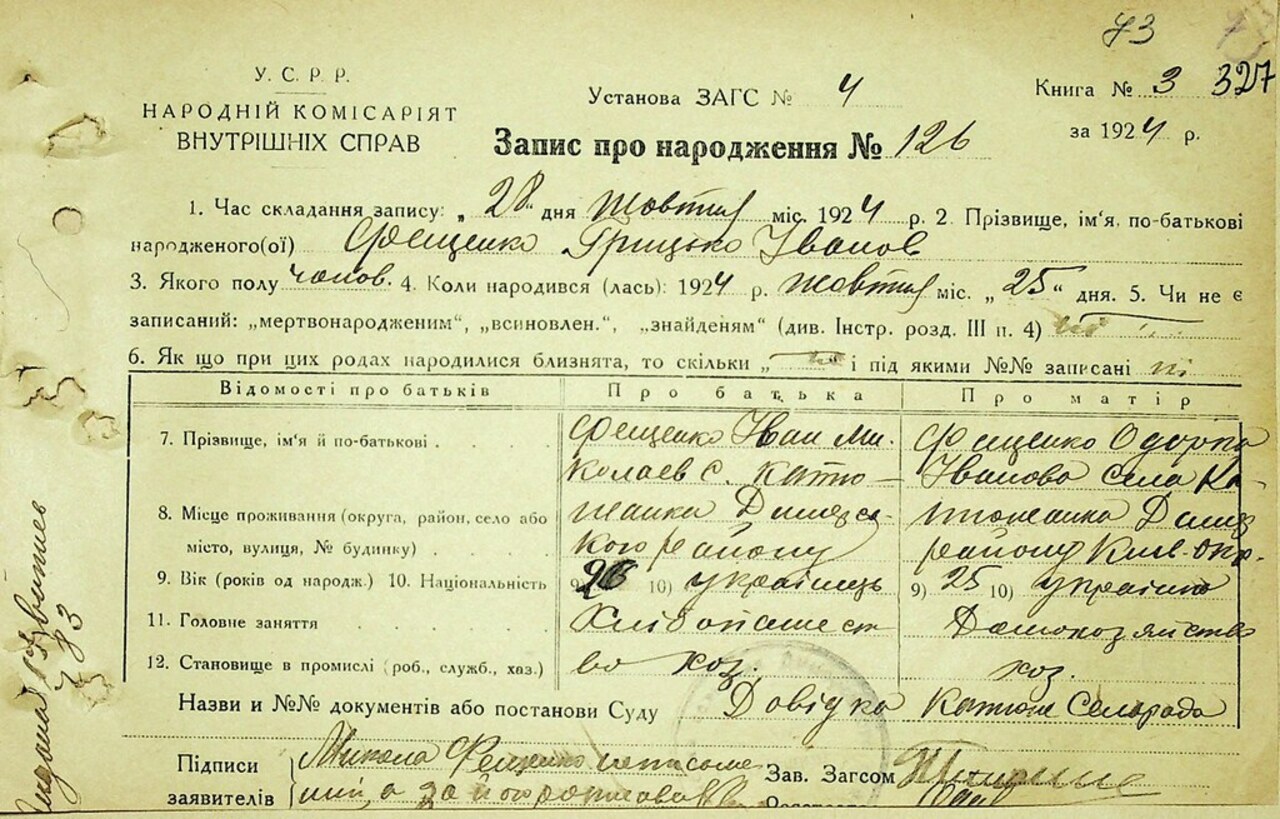 73
У. С. Р. Р.
НАРОДНІЙ КОМІСАРІЯТ
ВНУТРІШНІХ СПРАВ
Установа ЗАГС № 4
Книга № 3 327
за 1924 р.
Запис про народження № 126
1. Час складання запису: „28“ дня жовтня міс. 1924 р. 2. Прізвище, ім'я, по-батькові
народженого(ої) Фещенко Грицько Іванов
3. Якого полу чолов. 4. Коли народився (лась): 1924 р. жовтня міс. „25“ дня. 5. Чи не є
записаний: „мертвонародженим“, „всиновлен.“, „знайденям“ (див. Інстр. розд. III п. 4) ні
6. Як що при цих родах народилися близнята, то скільки „ “ і під якими №№ записані ні
Відомості про батьків Про батька Про матір
7. Прізвище, ім'я й по-батькові Фещенко Іван Ми- Фещенко Одарка
колаев с. Катю- Іванова села Ка-
8. Місце проживання (округа, район, село або жанка Димерсь- тюжанка Димер
місто, вулиця, № будинку) кого району району Київ. Окр.
9. Вік (років од народж.) 10. Національність 9) 26 10) українець 9) 25 10) українка
11. Головне заняття Хлібопашест Домохозяйство
12. Становище в промислі (роб., служб., хаз.) во хоз. хоз.
Назви и №№ документів або постанови Суду Довідка Катюж Сельрада
Підписи Микола Фещенко неписьме
заявителів ний, а за його росписався
Зав. Загсом
73